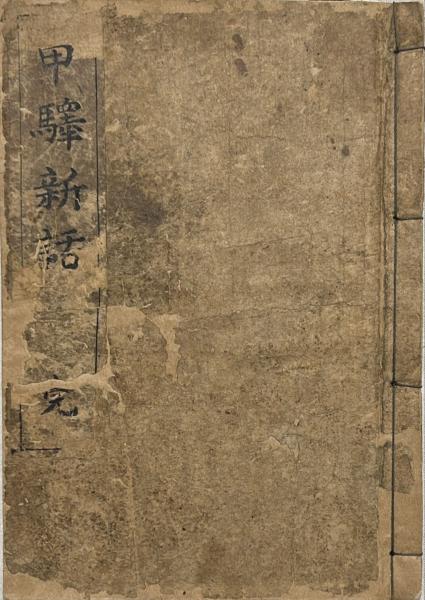 甲驛新話 完